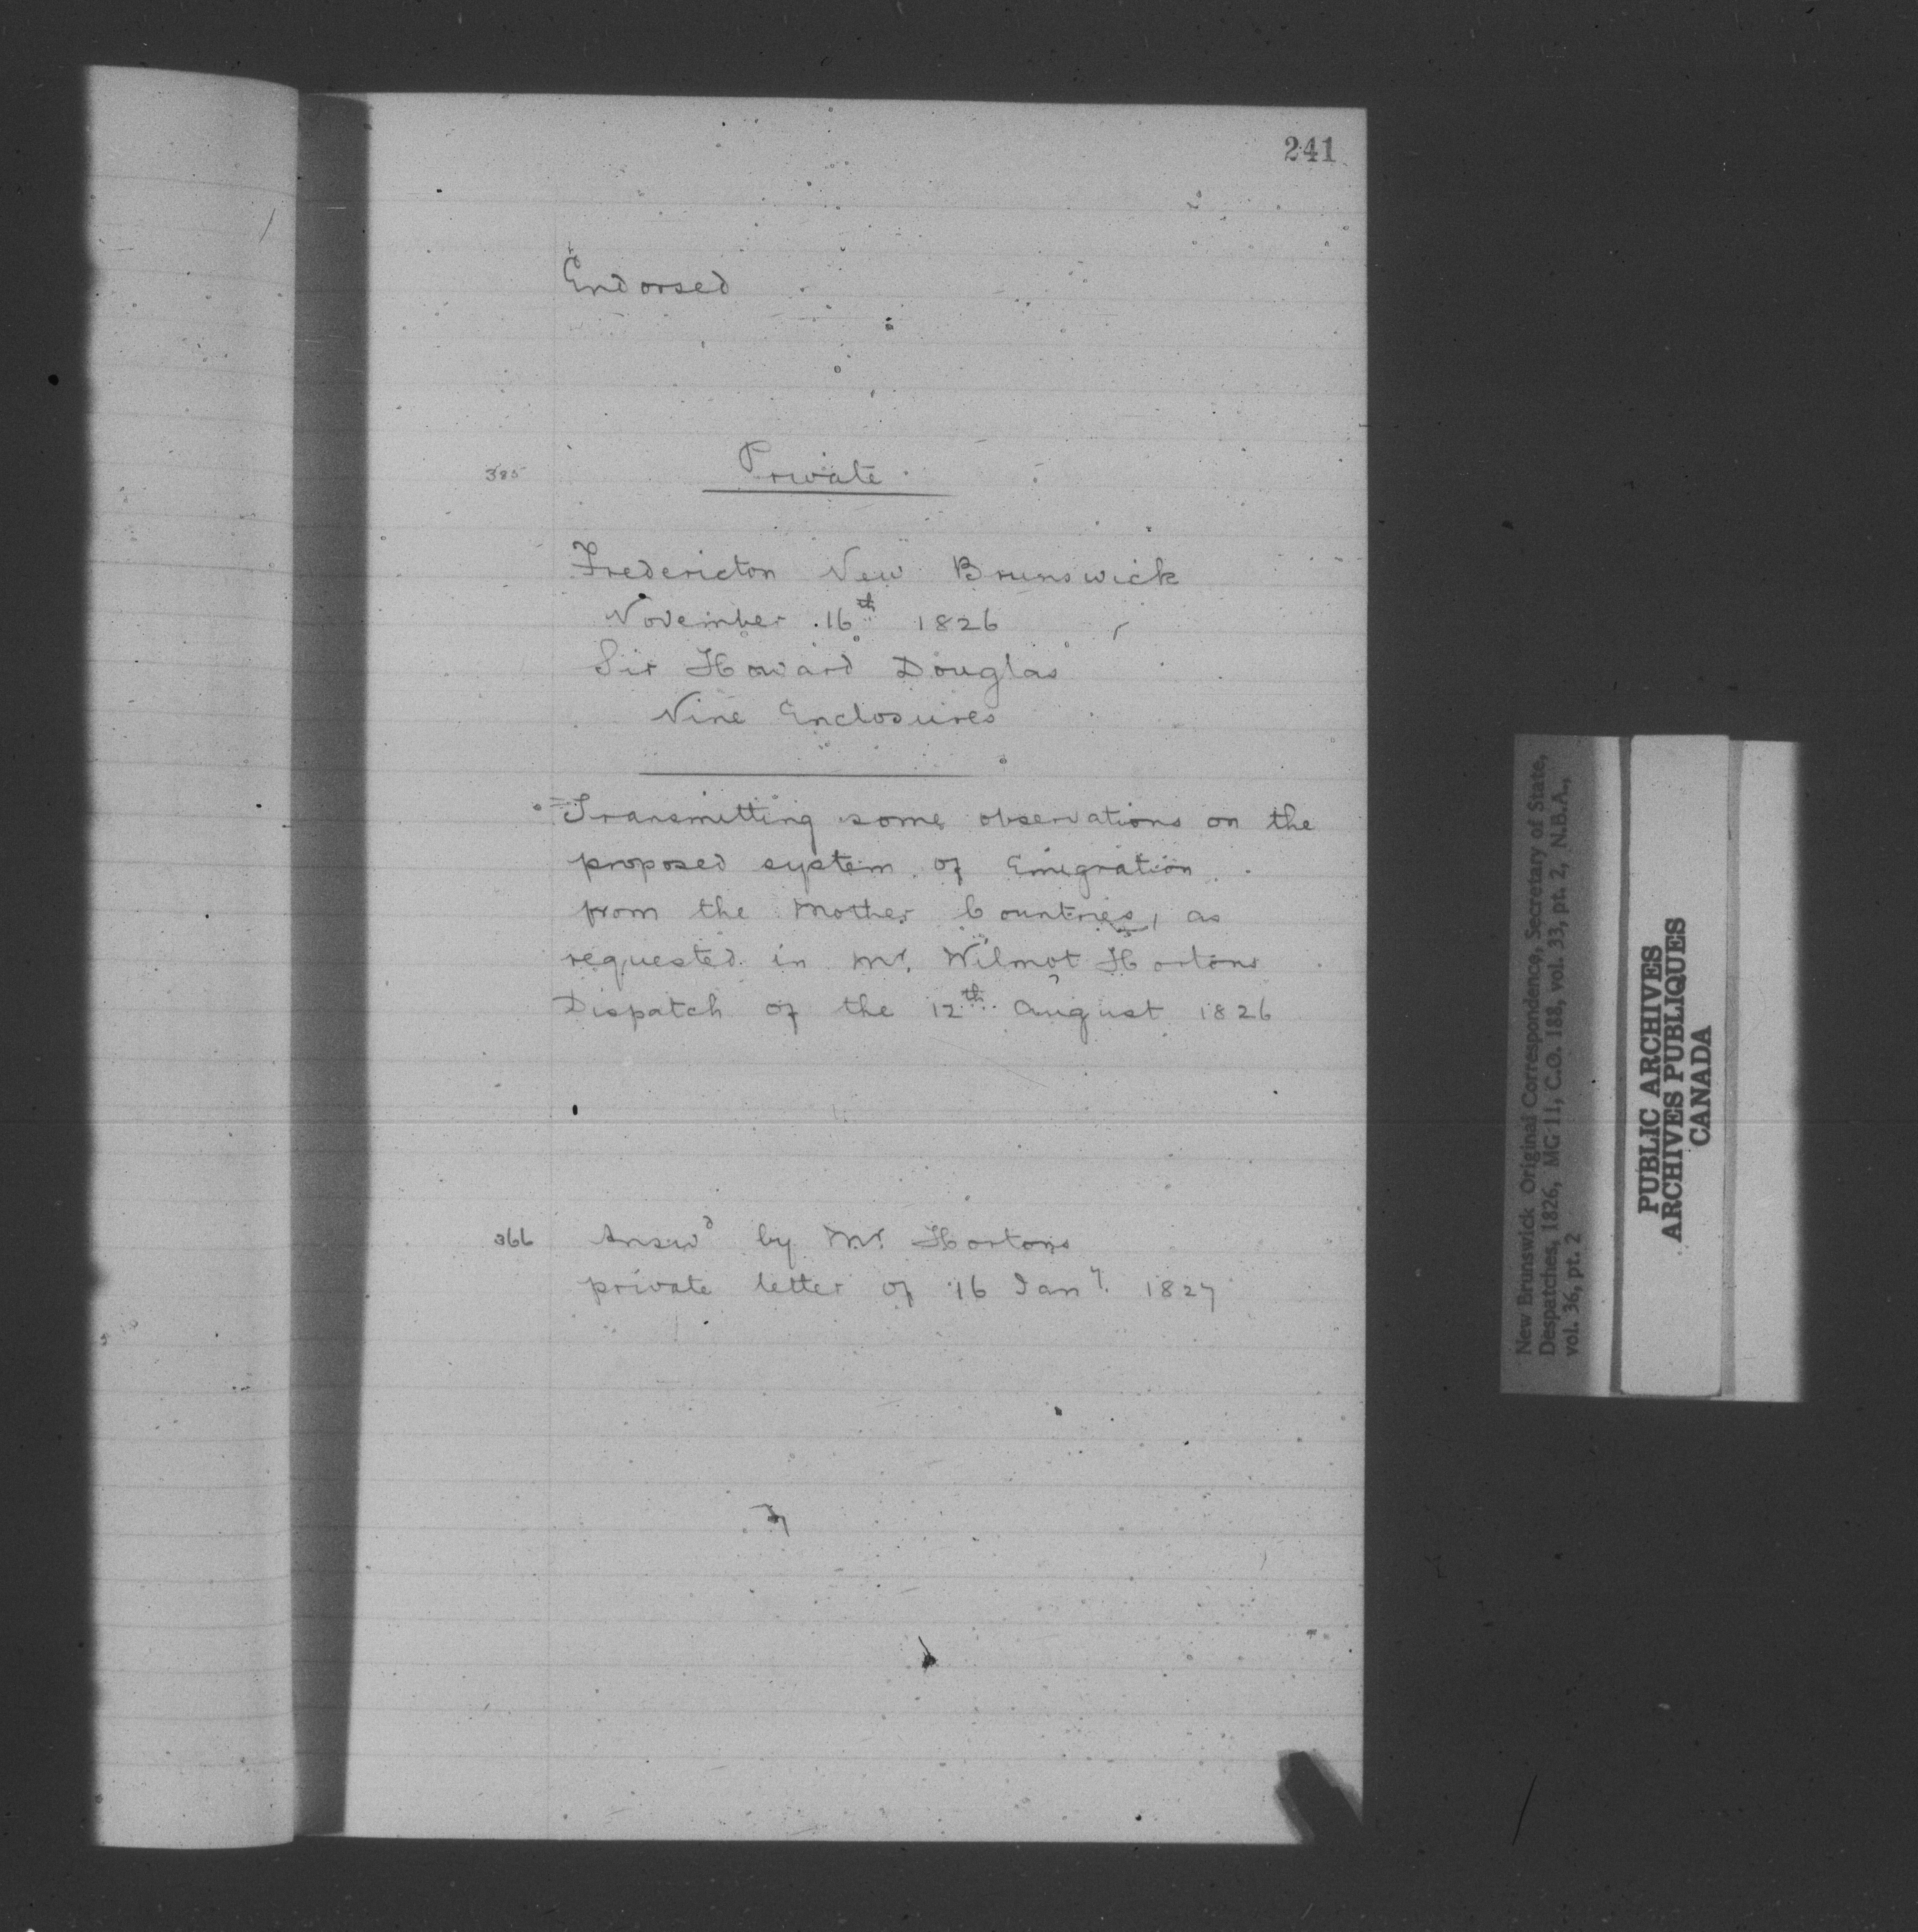 241
Endorsed
Private
Fredericton New Brunswick
November 16th 1826
Sir Howard Douglas
Nine Enclosures
Transmitting some observations on the
proposed system of Emigration
from the Mother Countries, as
requested in Mr. Wilmot Hortons
Dispatch of the 12th August 1826
366 Answd by Mr. Hortons
private letter of 16 Jany. 1827
New Brunswick Original Correspondence, Secretary of State,
Despatches, 1826, MG 11, C.O. 188, vol. 33, pt. 2, N.B.A.,
vol. 36, pt. 2
PUBLIC ARCHIVES
ARCHIVES PUBLIQUES
CANADA